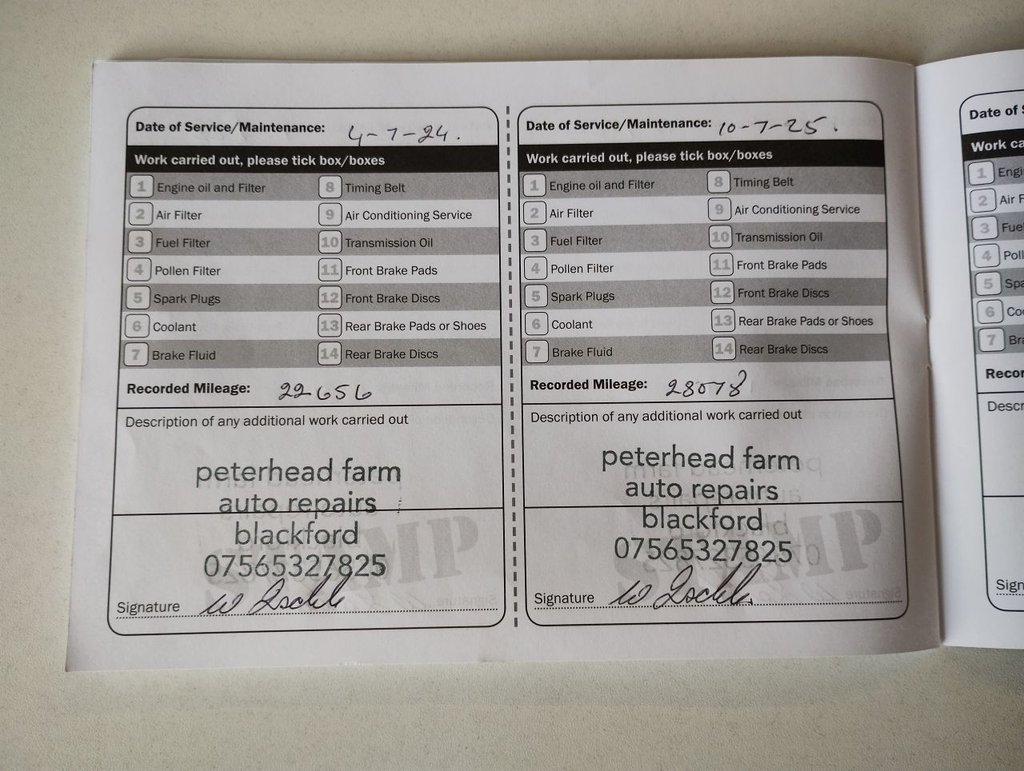 Date of Service/Maintenance: 4-7-24.
Work carried out, please tick box/boxes
1 Engine oil and Filter 8 Timing Belt
2 Air Filter 9 Air Conditioning Service
3 Fuel Filter 10 Transmission Oil
4 Pollen Filter 11 Front Brake Pads
5 Spark Plugs 12 Front Brake Discs
6 Coolant 13 Rear Brake Pads or Shoes
7 Brake Fluid 14 Rear Brake Discs
Recorded Mileage: 22656
Description of any additional work carried out
peterhead farm
auto repairs
blackford
07565327825
STAMP
Signature
Date of Service/Maintenance: 10-7-25.
Work carried out, please tick box/boxes
1 Engine oil and Filter 8 Timing Belt
2 Air Filter 9 Air Conditioning Service
3 Fuel Filter 10 Transmission Oil
4 Pollen Filter 11 Front Brake Pads
5 Spark Plugs 12 Front Brake Discs
6 Coolant 13 Rear Brake Pads or Shoes
7 Brake Fluid 14 Rear Brake Discs
Recorded Mileage: 28078
Description of any additional work carried out
peterhead farm
auto repairs
blackford
07565327825
STAMP
Signature
Date of S
Work ca
1 Engi
2 Air F
3 Fue
4 Poll
5 Spa
6 Co
7 Br
Recor
Descr
Sign